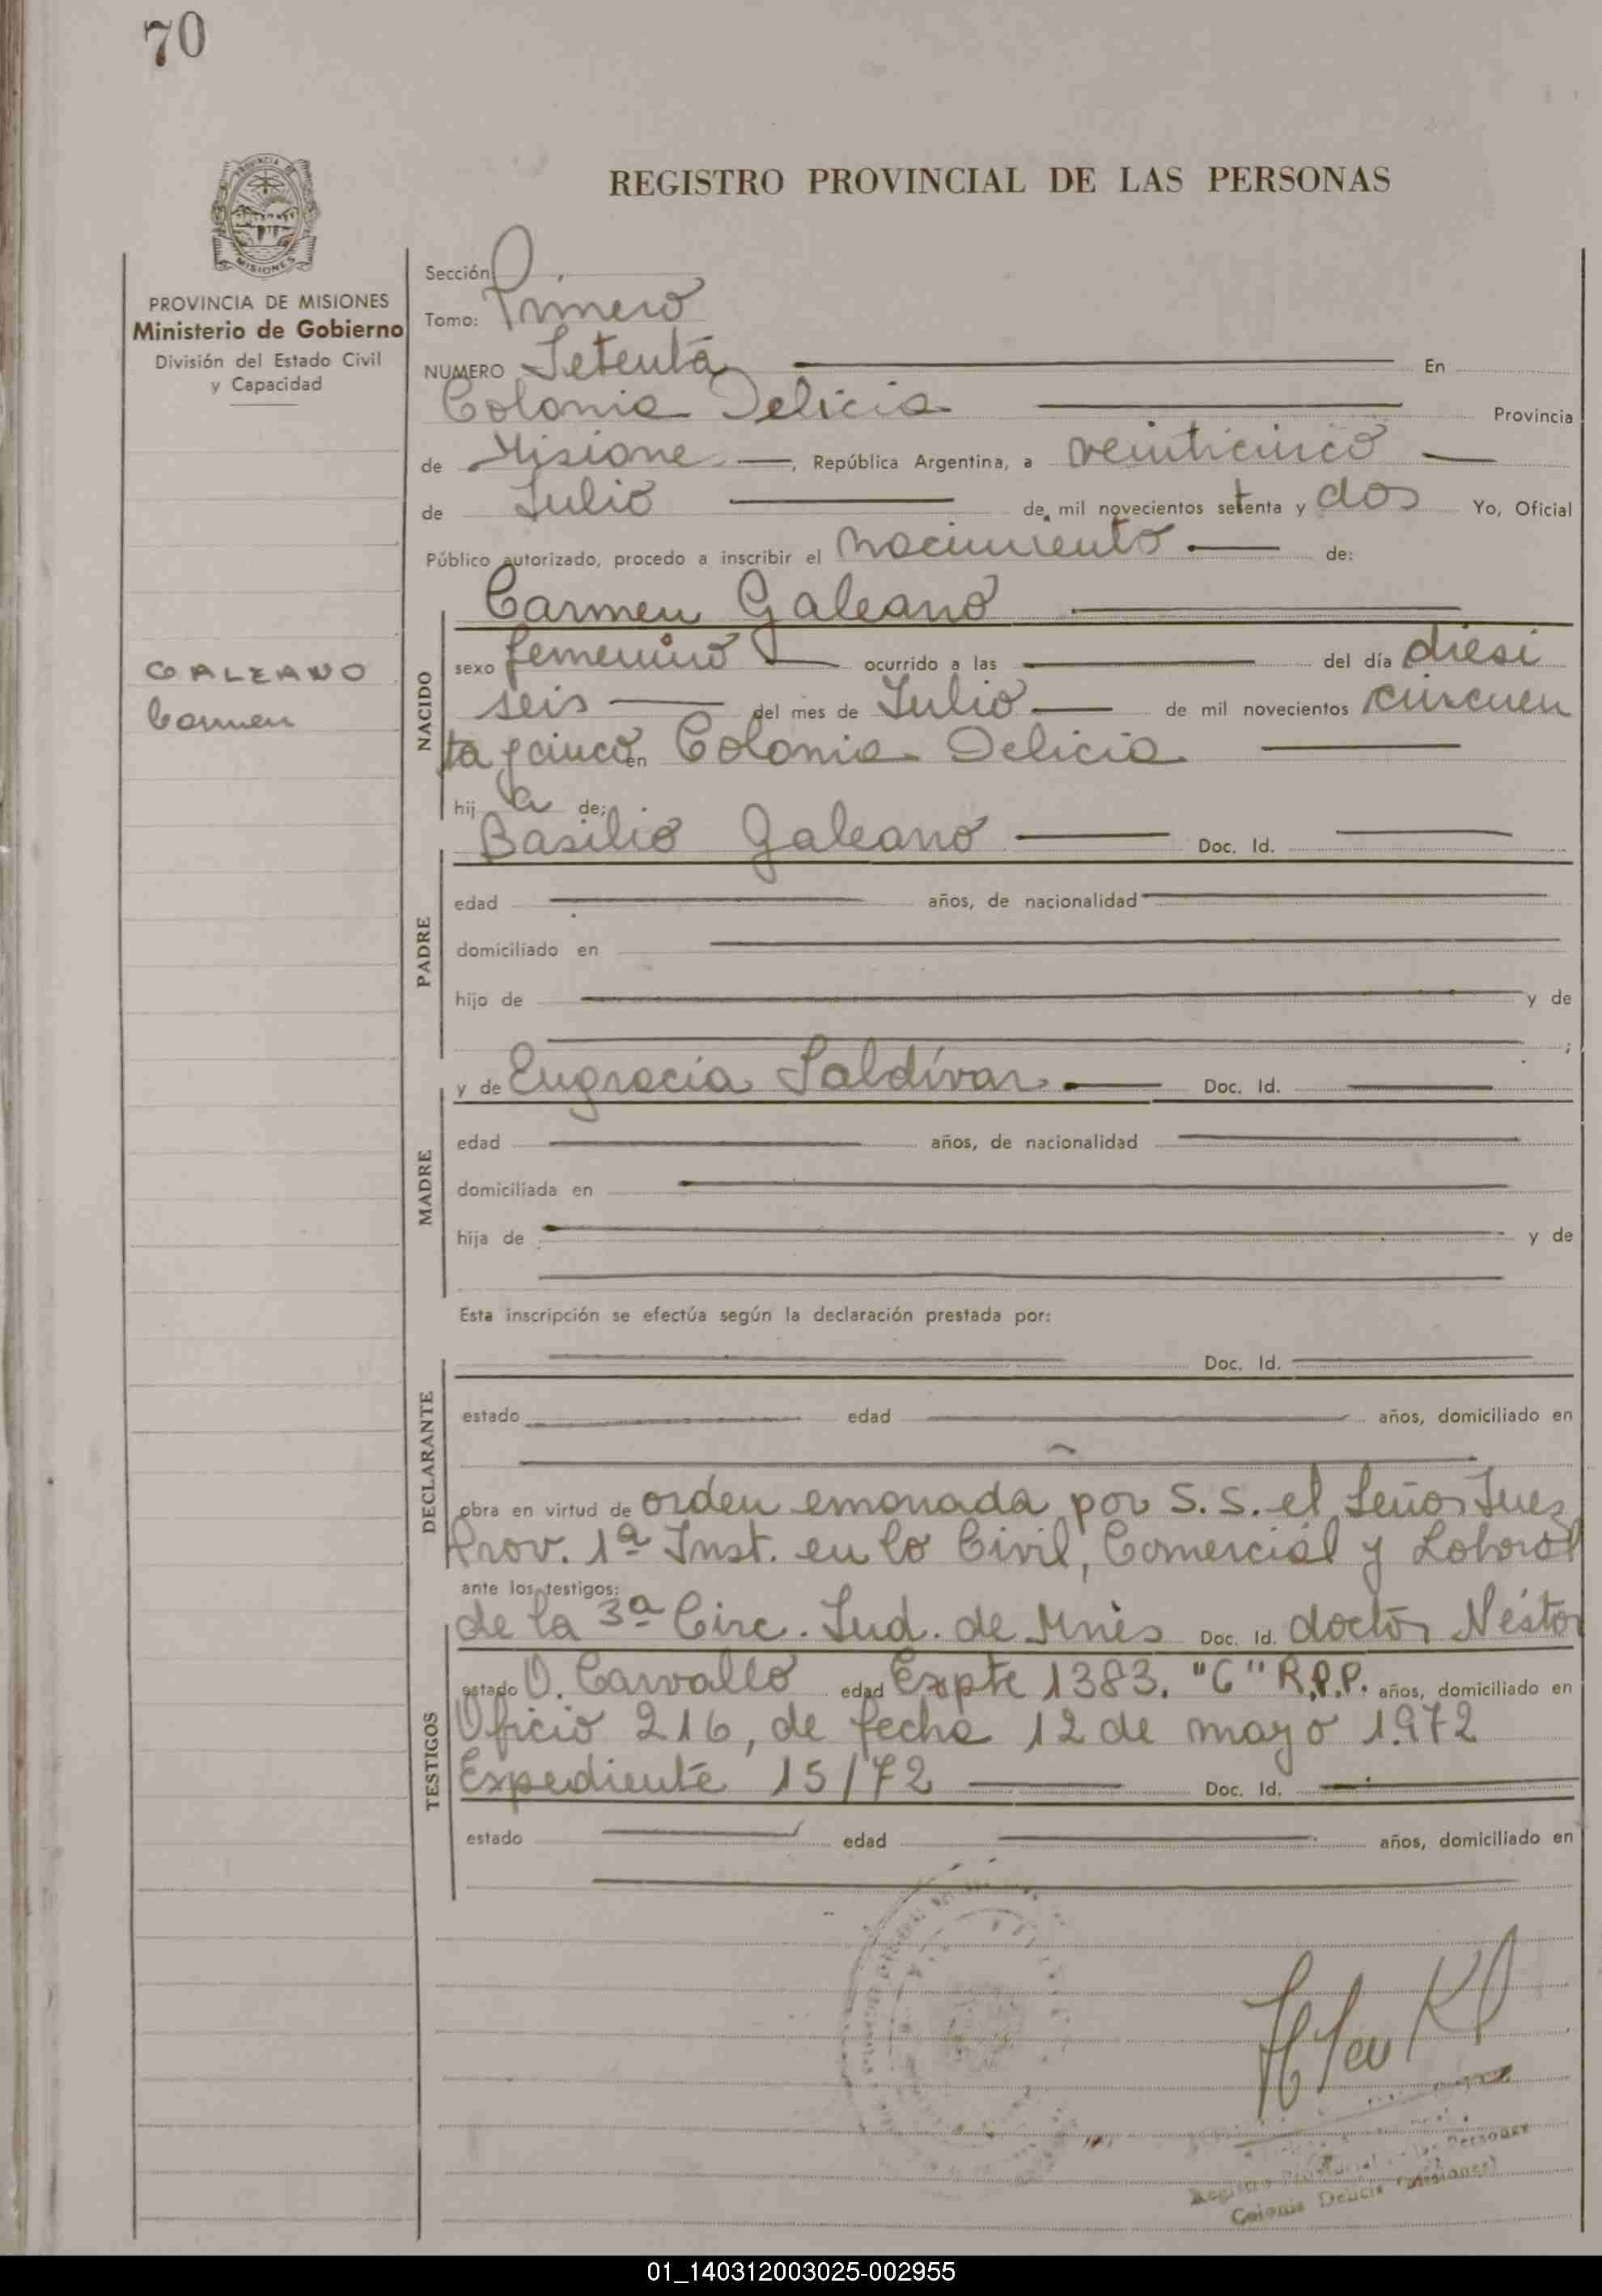 70
REGISTRO PROVINCIAL DE LAS PERSONAS
MISIONES
PROVINCIA DE MISIONES
Ministerio de Gobierno
División del Estado Civil
y Capacidad
GALEANO
Carmen
Sección
Tomo: Primero
NUMERO Setenta En
Colonia Delicia Provincia
de Misione, República Argentina, a veinticinco
de Julio de mil novecientos setenta y dos Yo, Oficial
Público autorizado, procedo a inscribir el nacimiento de:
NACIDO
Carmen Galeano
sexo femenino ocurrido a las del día diesi
seis del mes de Julio de mil novecientos cincuen
ta y cinco en Colonia Delicia
hij a de:
PADRE
Basilio Galeano Doc. Id.
edad años, de nacionalidad
domiciliado en
hijo de y de
;
MADRE
y de Engracia Saldívar Doc. Id.
edad años, de nacionalidad
domiciliada en
hija de y de
Esta inscripción se efectúa según la declaración prestada por:
DECLARANTE
Doc. Id.
estado edad años, domiciliado en
obra en virtud de orden emanada por S.S. el Señor Juez
Prov. 1ª Inst. en lo Civil, Comercial y Laboral
ante los testigos:
TESTIGOS
de la 3ª Circ. Jud. de Mnes Doc. Id. doctor Néstor
estado O. Carvallo edad Expte 1383. "G" R.P.P. años, domiciliado en
Oficio 216, de fecha 12 de mayo 1.972
Expediente 15/72 Doc. Id.
estado edad años, domiciliado en
Registro Provincial de las Personas
Colonia Delicia (Misiones)
01_140312003025-002955